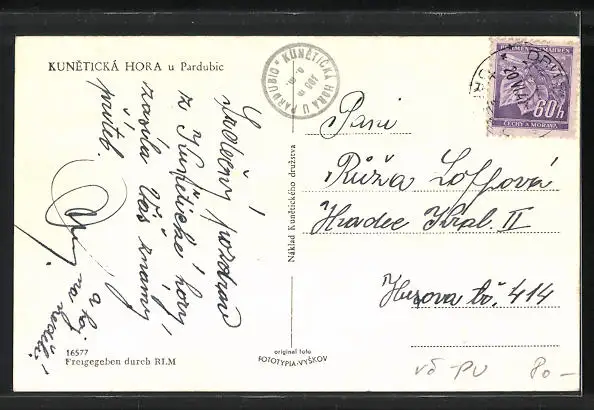 KUNĚTICKÁ HORA u Pardubic
KUNĚTICKÁ HORA U PARDUBIC
BÖHMEN U. MÄHREN
60h
ČECHY A MORAVA
Srdečný pozdrav
z Kunětické hory,
zasílá Váš známý
a hoj
na neděli!
Náklad Kunětického družstva
Paní
Růža
Hradec Král. II
Husova tř. 414
16577
Freigegeben durch RLM
original foto
FOTOTYPIA-VYŠKOV
vö PU 80-